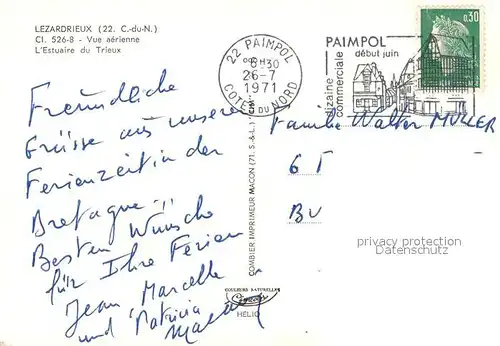 LEZARDRIEUX (22. C.-du-N.)
Cl. 526-8 - Vue aérienne
L'Estuaire du Trieux
22 PAIMPOL
6 30
26-7
1971
COTES DU NORD
PAIMPOL
début juin
dizaine
commerciale
0,30
Freundliche
Grüsse aus unserer
Ferienzeit in der
Bretagne
Besten Wünsche
für Ihre Ferien
Jean Marcelle
und Patricia
COMBIER IMPRIMEUR MACON (71. S.-&-L.)
COULEURS NATURELLES
HÉLIO
Familie Walter MULLER
6 F
BU
privacy protection
Datenschutz